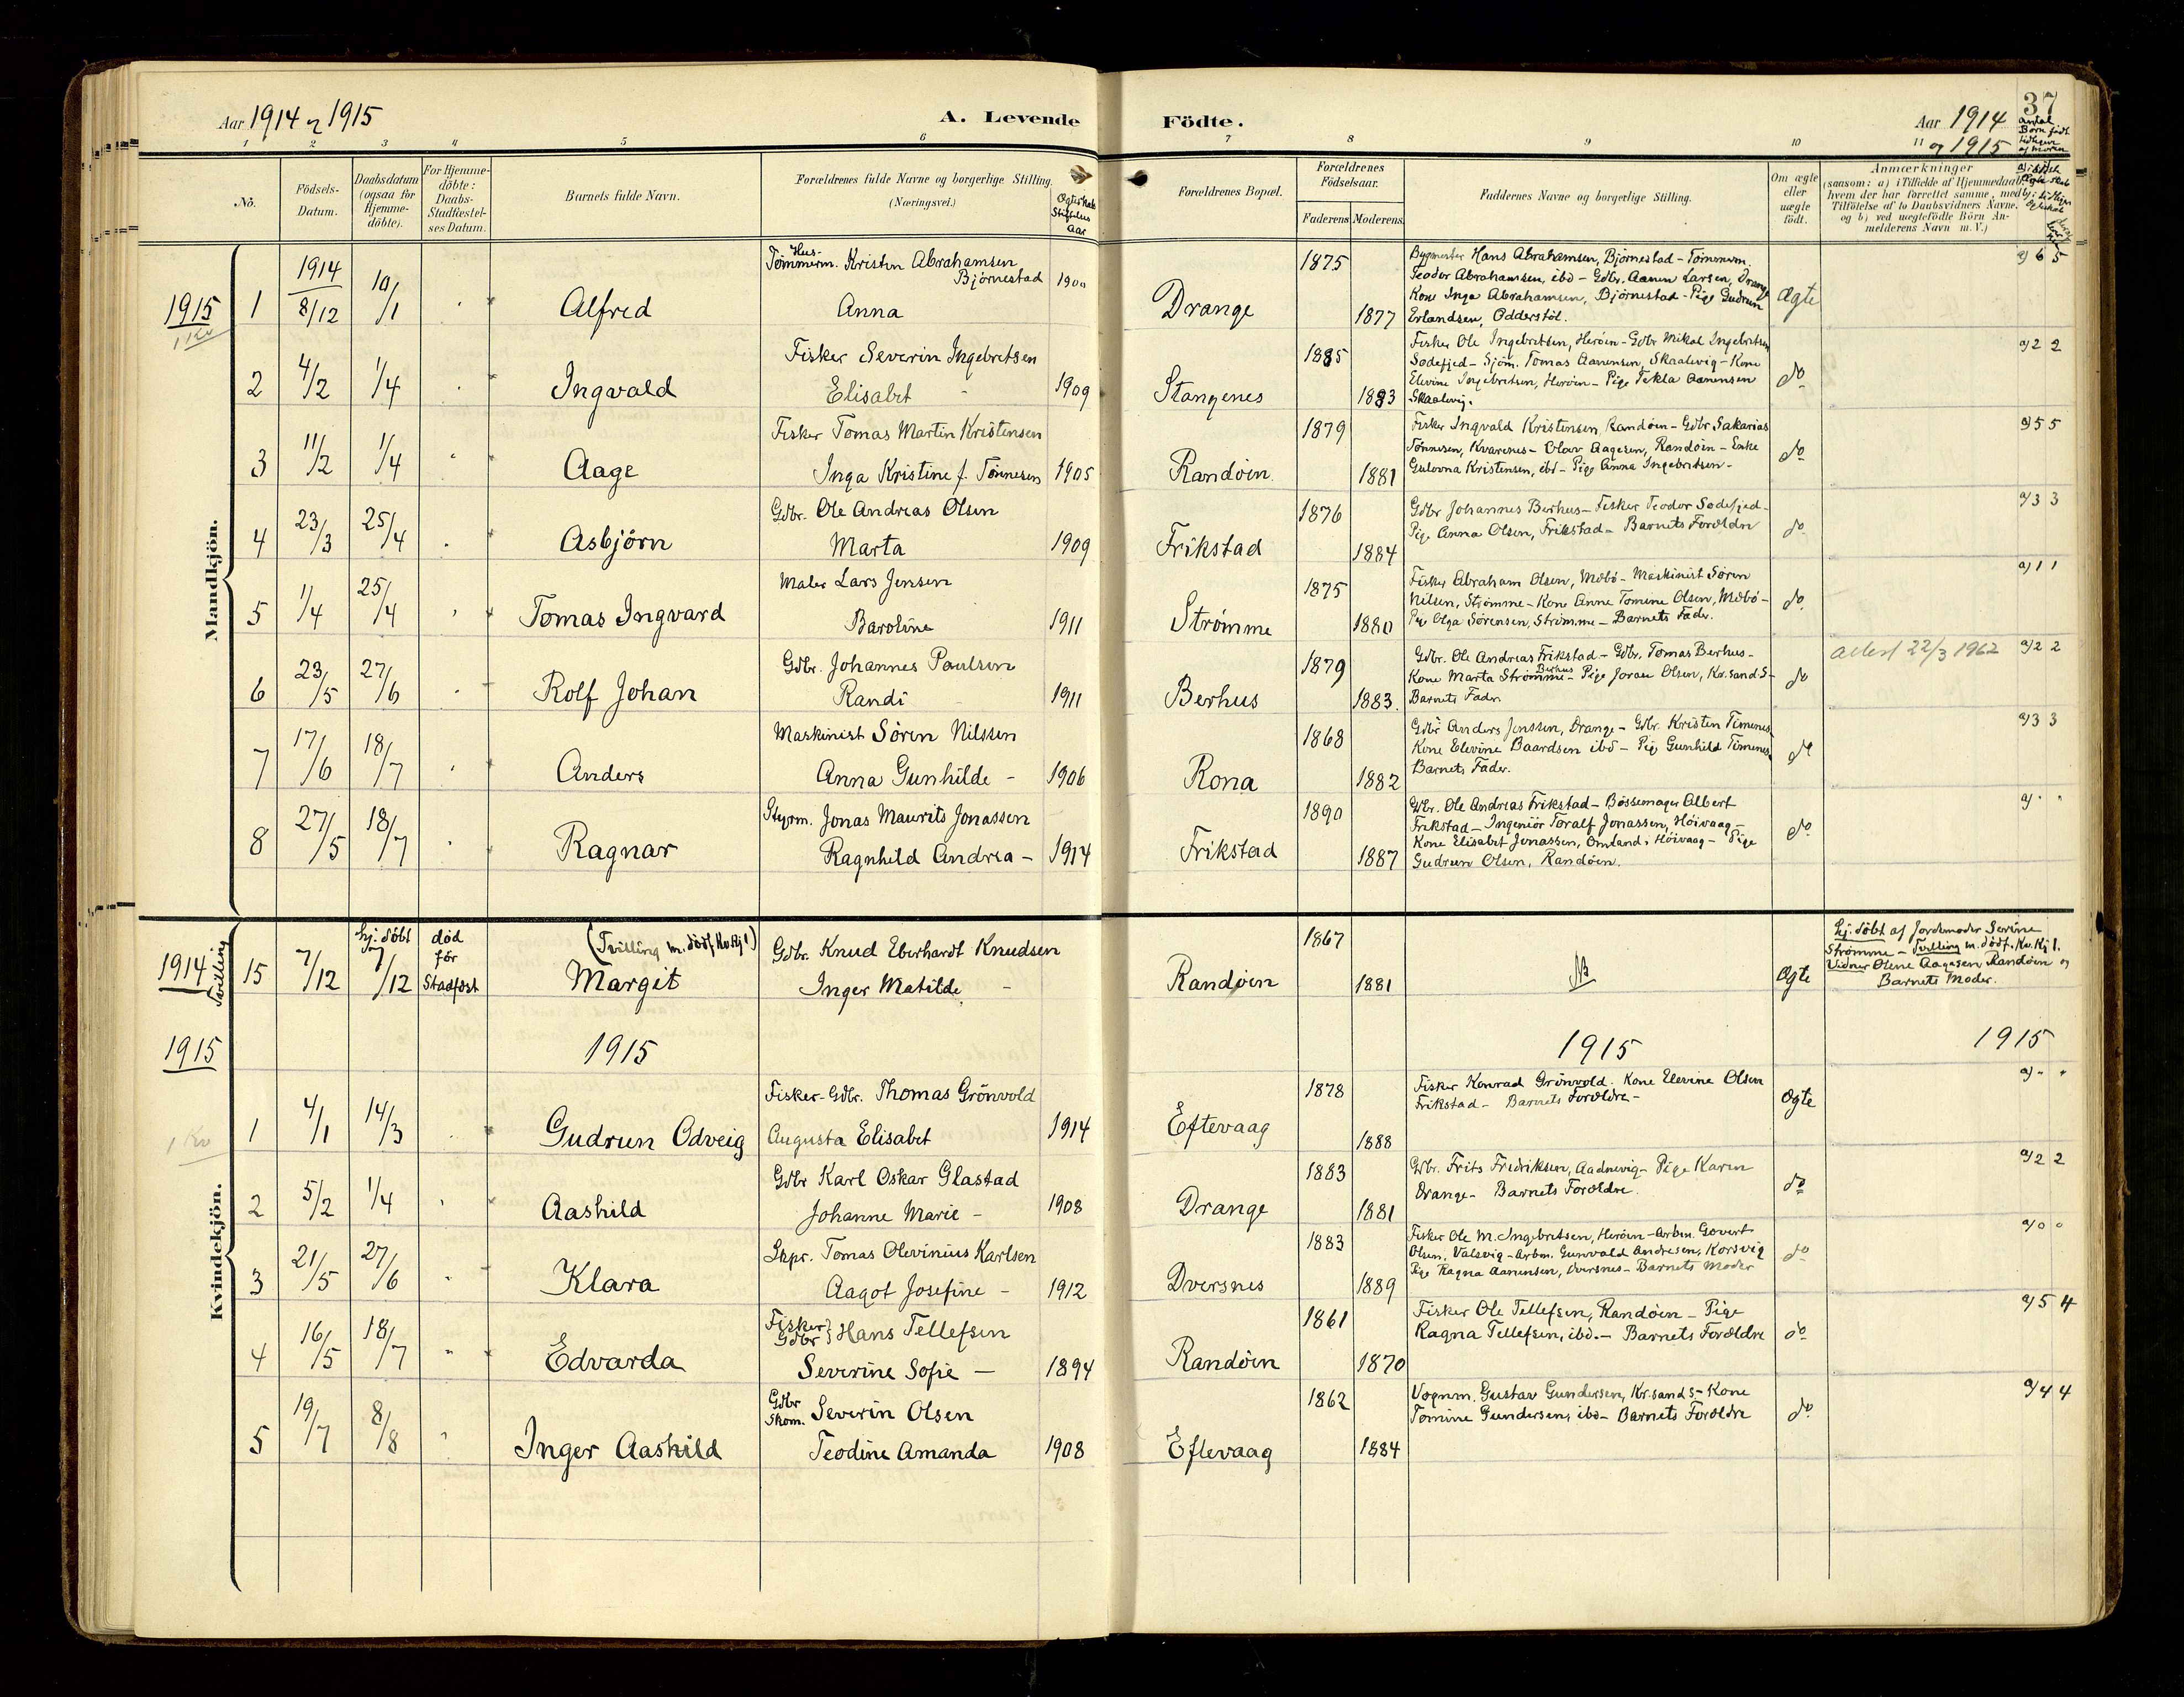 Aar 1914 og 1915
A. Levende
Födte.
Aar 1914
og 1915
37
Antal
Børn født
tidligere
af moren
1 2 3 4 5 6 7 8 9 10 11
No.
Födsels-
Datum.
Daabsdatum
(ogsaa for
Hjemme-
döbte).
For Hjemme-
döbte:
Daabs-
Stadfæstel-
ses Datum.
Barnets fulde Navn.
Forældrenes fulde Navne og borgerlige Stilling.
(Næringsvei.)
Ægteskab
Stiftelses
Aar
Forældrenes Bopæl.
Forældrenes
Födselsaar.
Faderens Moderens
Faddernes Navne og borgerlige Stilling.
Om ægte
eller
uægte
födt.
Anmærkninger
(saasom: a) i Tilfælde af Hjemmedaab,
hvem der har forrettet samme, med
Tilföielse af to Daabsvidners Navne,
og b) ved uægtefödte Börn An-
melderens Navn m. V.)
Mandkjön.
1915
1 Kv
1 1914 8/12 10/1 " Alfred
Hus-
Tömmerm. Kristen Abrahamsen
Bjørnestad 1900
Anna
Drange 1875 1877
Bygmester Hans Abrahamsen, Bjørnestad - Tömmerm.
Teodor Abrahamsen, ibd - Gdbr. Aanen Larsen, Drange
Kone Inga Abrahamsen, Bjørnestad - Pige Gudrun
Erlandsen, Odderstøl.
Ægte a) 6 5
2 4/2 1/4 " Ingvald
Fisker Severin Ingebretsen
Elisabet - 1909
Stangenes 1885 1883
Fisker Ole Ingebretsen, Herøen - Gdbr Mikal Ingebretsen
Sodefjed - Sjøm. Tomas Aanensen, Skaalevig - Kone
Elevine Ingebretsen, Herøen - Pige Tekla Aanensen
Skaalevig.
do a) 2 2
3 11/2 1/4 " Aage
Fisker Tomas Martin Kristensen
Inga Kristine f. Tønnesen 1905
Randøen 1879 1881
Fisker Ingvald Kristensen, Randøen - Gdbr Sakarias
Tønnesen, Kvarenes - Olav Aagesen, Randøen - Enke
Gulovna Kristensen, ibd - Pige Anna Ingebretsen -
do a) 5 5
4 23/3 25/4 " Asbjörn
Gdbr. Ole Andreas Olsen
Marta 1909
Frikstad 1876 1884
Gdbr Johannes Berhus - Fisker Teodor Sodefjed -
Pige Anna Olsen, Frikstad - Barnets Forældre
do a) 3 3
5 1/4 25/4 " Tomas Ingvard
Maler Lars Jensen
Baroline 1911
Strømme 1875 1880
Fisker Abraham Olsen, Mebø - Maskinist Søren
Nilsen, Strømme - Kone Anne Tomine Olsen, Mebø -
Pige Olga Sørensen, Strømme - Barnets Fader.
do a) 1 1
6 23/5 27/6 " Rolf Johan
Gdbr. Johannes Paulsen
Randi 1911
Berhus 1879 1883.
Gdbr. Ole Andreas Frikstad - Gdbr. Tomas Berhus -
Kone Marta Strømme Berhus - Pige Joran Olsen, Kr.sand S -
Barnets Fader.
do Attest 22/3 1962 a) 2 2
7 17/6 18/7 " Anders
Maskinist Søren Nilssen
Anna Gunhilde - 1906
Rona 1868 1882
Gdbr Anders Jenssen, Drange - Gdbr. Kristen Timenes
Kone Elevine Baardsen ibd - Pige Gunhild Timenes
Barnets Fader.
do a) 3 3
8 27/5 18/7 " Ragnar
Styrm. Jonas Maurits Jonassen
Ragnhild Andrea - 1914
Frikstad 1890 1887
Gdbr. Ole Andreas Frikstad - Bössemager Albert
Frikstad - Ingeniör Toralf Jonassen, Höivaag -
Kone Elisabet Jonassen, Omland i Höivaag - Pige
Gudrun Olsen, Randøen.
do a) " "
Kvindekjön.
1914
Tvilling
15 7/12 hj. döbt 7/12 död för Stadfæst
(Tvilling m. dödf. Kv.kj 1)
Margit
Gdbr. Knud Eberhardt Knudsen
Inger Matilde -
Randøen 1867 1881
Ægte
hj. döbt af Jordemoder Severine
Strømme - Tvilling m. dödf. Kv. Kj 1.
Vidner Olene Aagesen Randøen og
Barnets Moder.
1915 1915 1915 1915
1 Kv
1 4/1 14/3 " Gudrun Odveig
Fisker-Gdbr. Thomas Grönvold
Augusta Elisabet 1914
Eftevaag 1878 1888
Fisker Konrad Grönvold. Kone Elevine Olsen
Frikstad - Barnets Forældre -
Ægte a) " "
2 5/2 1/4 " Aashild
Gdbr Karl Oskar Glastad
Johanne Marie - 1908
Drange 1883 1881
Gdbr. Frits Fredriksen, Aadnevig - Pige Karen
Drange - Barnets Forældre.
do a) 2 2
3 21/5 27/6 " Klara
Skpr. Tomas Olevinius Karlsen
Aagot Josefine - 1912
Dversnes 1883 1889
Fisker Ole M. Ingebretsen, Herøen - Arbm. Govert
Olsen, Valsvig - Arbm. Gunvald Andresen, Korsvig
Pige Ragna Aanensen, Dversnes - Barnets Moder
do a) 0 0
4 16/5 18/7 " Edvarda
Fisker
Gdbr } Hans Tellefsen
Severine Sofie - 1894
Randøen 1861 1870
Fisker Ole Tellefsen, Randøen - Pige
Ragna Tellefsen, ibd. - Barnets Forældre
do a) 5 4
5 19/7 8/8 " Inger Aashild
Gdbr
Skom. Severin Olsen
Teodine Amanda 1908
Eftevaag 1862 1884
Vognm. Gustav Gundersen, Kr.sand S - Kone
Tomine Gundersen, ibd - Barnets Forældre
do a) 4 4